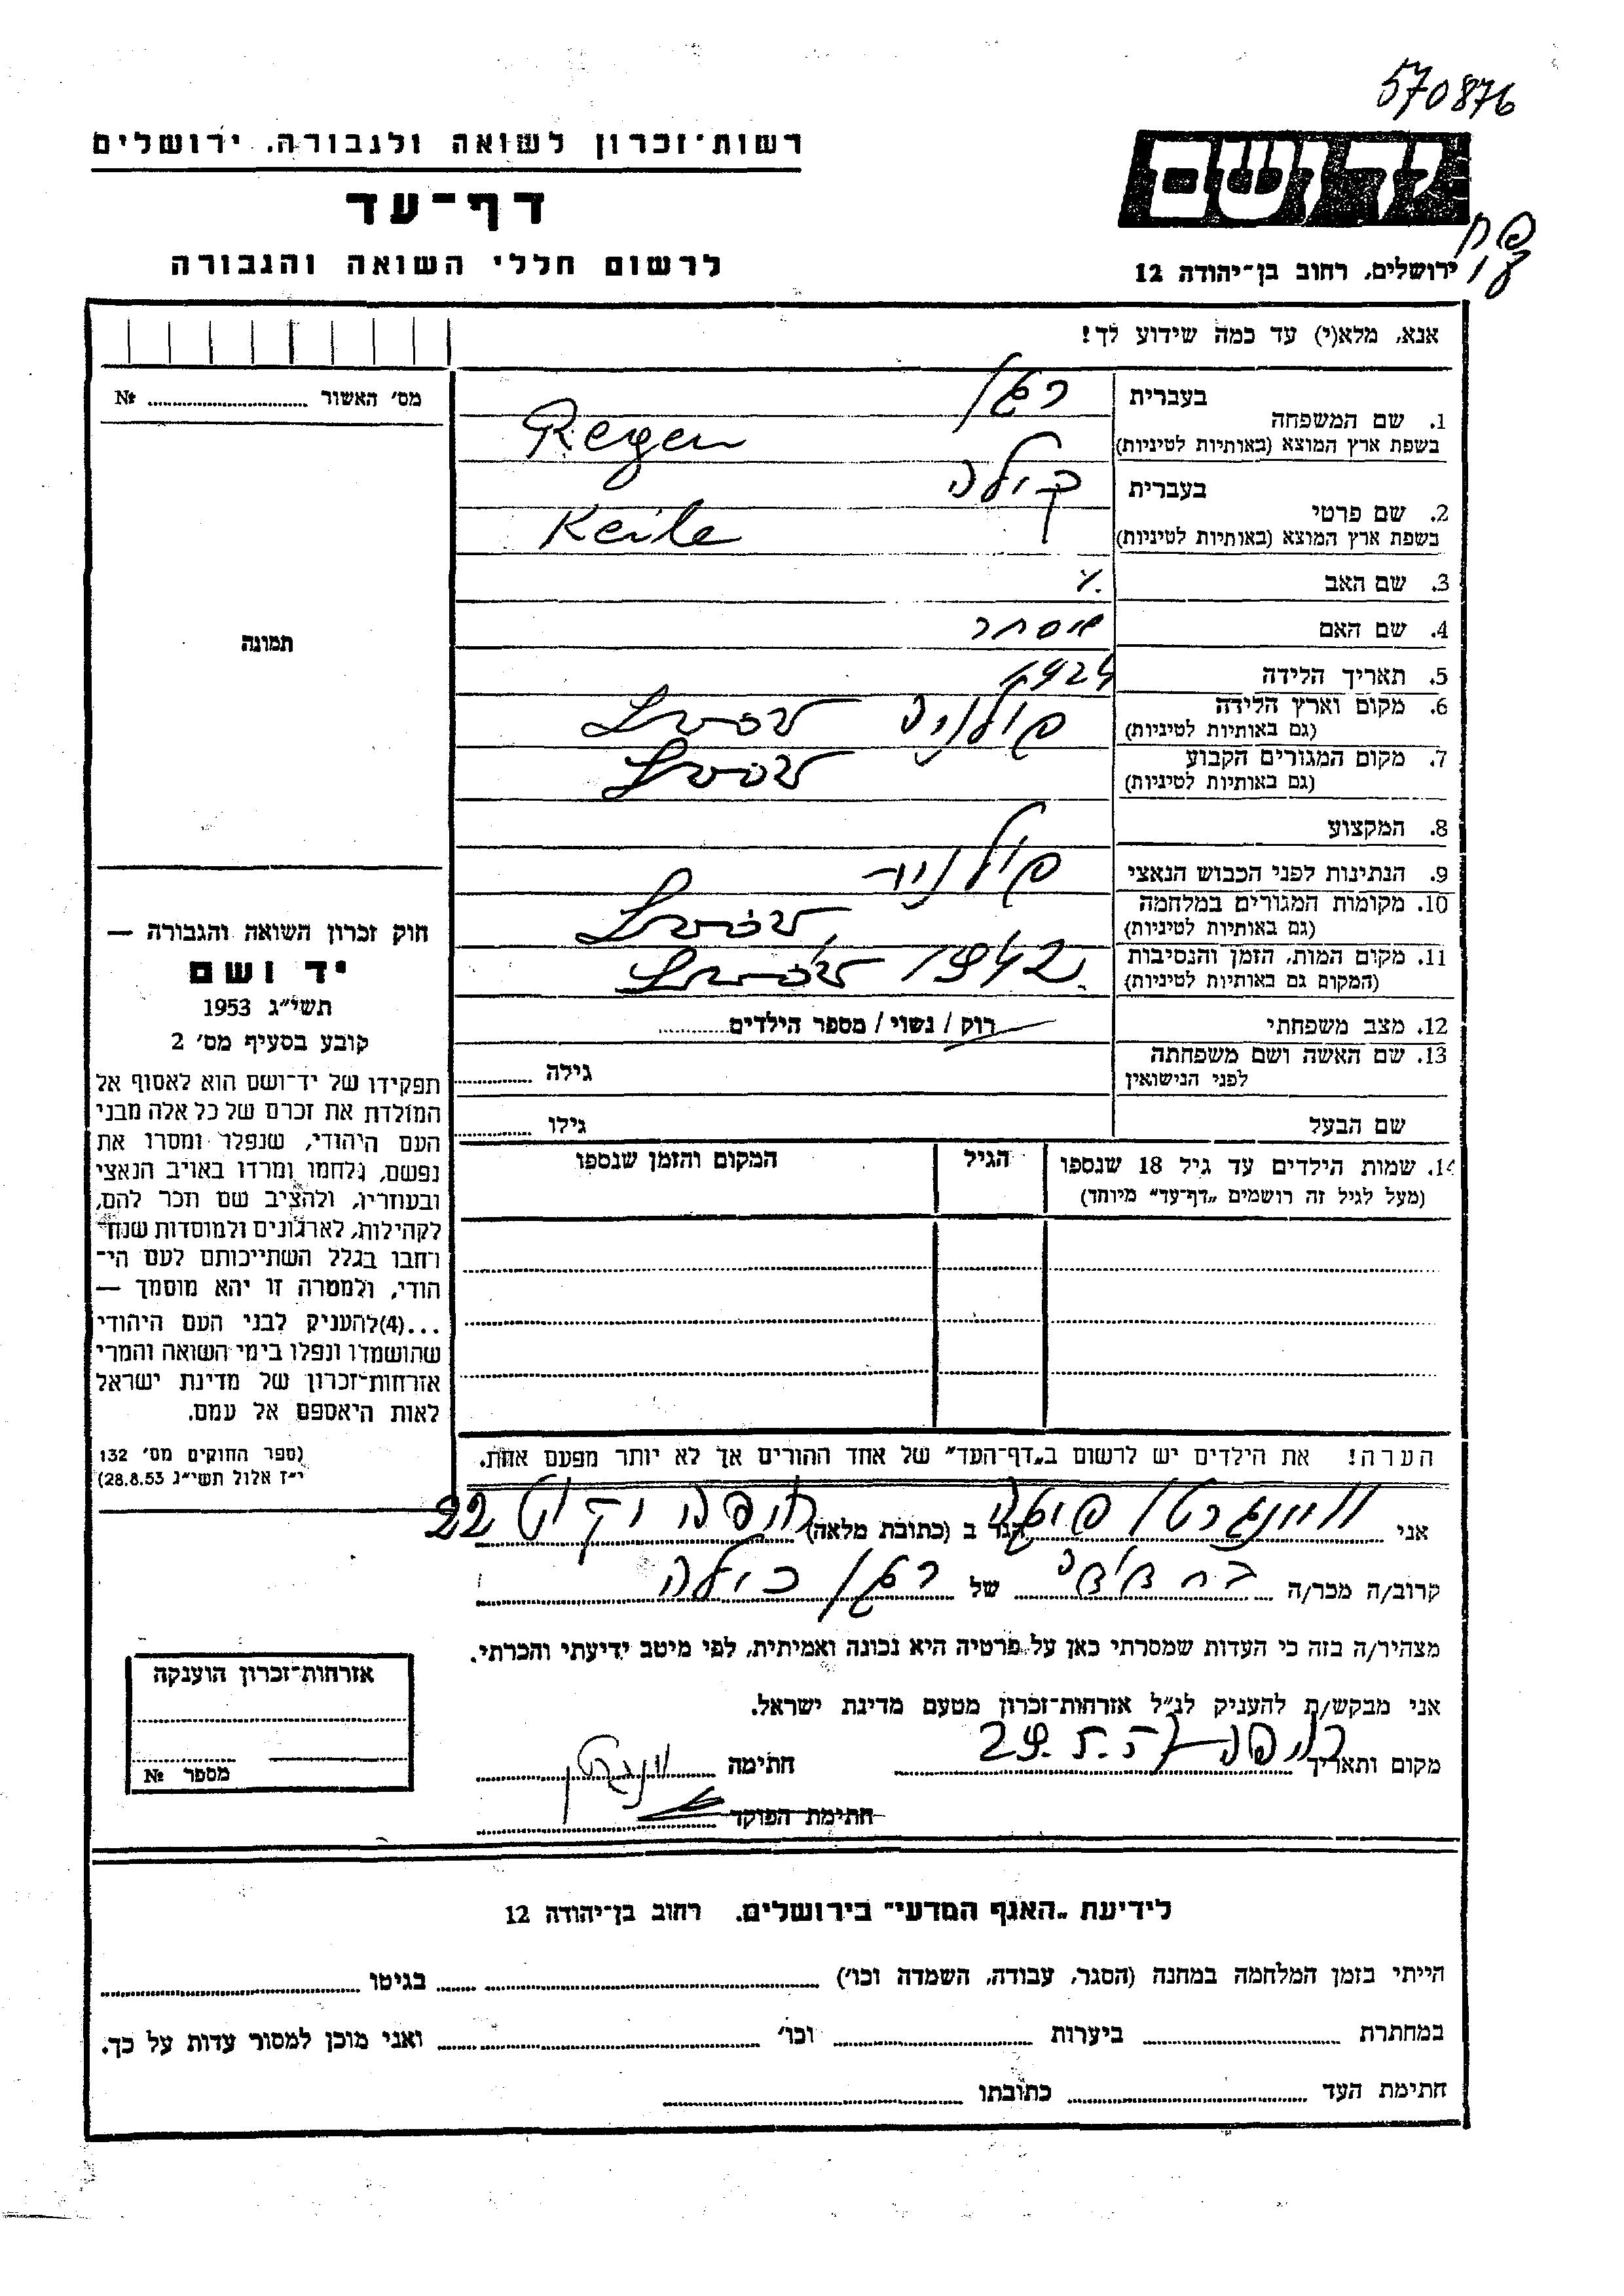 570876
רשות־זכרון לשואה ולגבורה, ירושלים
ידושם
דף־עד
לרשום חללי השואה והגבורה
ירושלים, רחוב בן־יהודה 12
אנא, מלא(י) עד כמה שידוע לך!
מס׳ האשור № 
1. שם המשפחה
בעברית רגן
בשפת ארץ המוצא (באותיות לטיניות) Regen
2. שם פרטי
בעברית קילה
בשפת ארץ המוצא (באותיות לטיניות) Keile
3. שם האב
4. שם האם
5. תאריך הלידה 1924
6. מקום וארץ הלידה פולניה
(גם באותיות לטיניות)
7. מקום המגורים הקבוע
(גם באותיות לטיניות)
8. המקצוע
9. הנתינות לפני הכבוש הנאצי
10. מקומות המגורים במלחמה
(גם באותיות לטיניות)
11. מקום המות, הזמן והנסיבות 1942
(המקום גם באותיות לטיניות)
12. מצב משפחתי רוק / נשוי / מספר הילדים
13. שם האשה ושם משפחתה
לפני הנישואין גילה
שם הבעל גילו
14. שמות הילדים עד גיל 18 שנספו הגיל המקום והזמן שנספו
(מעל לגיל זה רושמים „דף־עד״ מיוחד)
הערה! את הילדים יש לרשום ב„דף־העד״ של אחד ההורים אך לא יותר מפעם אחת.
תמונה
חוק זכרון השואה והגבורה —
יד ושם
תשי״ג 1953
קובע בסעיף מס׳ 2
תפקידו של יד־ושם הוא לאסוף אל
המולדת את זכרם של כל אלה מבני
העם היהודי, שנפלו ומסרו את
נפשם, נלחמו ומרדו באויב הנאצי
ובעוזריו, ולהציב שם וזכר להם,
לקהילות, לארגונים ולמוסדות שנח־
רחבו בגלל השתייכותם לעם הי־
הודי, ולמטרה זו יהא מוסמך —
...(4) להעניק לבני העם היהודי
שהושמדו ונפלו בימי השואה והמרי
אזרחות־זכרון של מדינת ישראל
לאות היאספם אל עמם.
(ספר החוקים מס׳ 132
י״ז אלול תשי״ג 28.8.53)
אני הגר ב (כתובת מלאה) חיפה 22
קרוב/ה מכר/ה של רגן קילה
מצהיר/ה בזה כי העדות שמסרתי כאן על פרטיה היא נכונה ואמיתית, לפי מיטב ידיעתי והכרתי.
אני מבקש/ת להעניק לנ״ל אזרחות־זכרון מטעם מדינת ישראל.
מקום ותאריך חתימה
חתימת הפוקד
אזרחות־זכרון הוענקה
מספר №
לידיעת „האגף המדעי״ בירושלים, רחוב בן־יהודה 12
הייתי בזמן המלחמה במחנה (הסגר, עבודה, השמדה וכו׳) בגיטו
במחתרת ביערות וכו׳ ואני מוכן למסור עדות על כך.
חתימת העד כתובתו